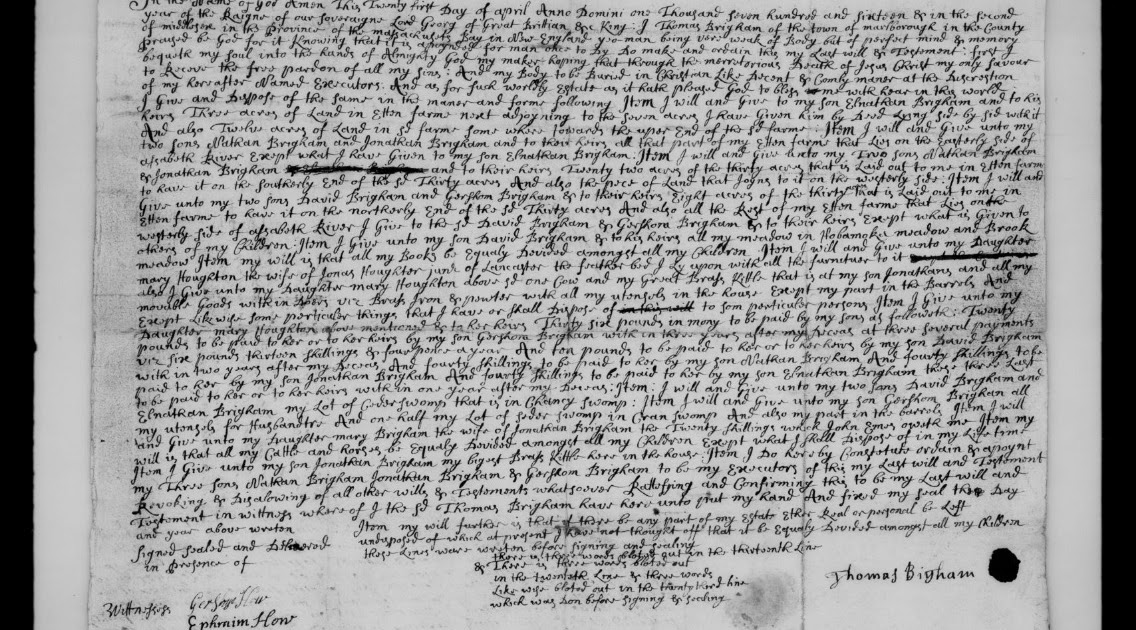 In the Name of God Amen This Twenty first Day of april Anno Domini one Thousand seven hundred and sixteen & in the second
year of the Raigne of our soveraigne Lord Georg of Great Brittian &c King: I Thomas Brigham of the town of marlborough in the County
of midlesex in the Province of the masachusets Bay in New England yeoman being very weak of Body but of perfect mind & memory
Praised be God for it Knowing that it is apointed for man once to Dy Do make and ordain this my Last will & Testament: first I
bequeth my soul into the hands of Almighty God my maker hoping that through the merretorious Death of Jesus Christ my only Savour
to Receve the free pardon of all my sins: And my Body to be Buried in Christan Like Decent & Comly maner at the Discrestion
of my hereafter Named Executors: And as for such worldly Estate as it hath pleased God to bless me with hear in this world
I Give and Dispose of the same in the maner and forme following Item I will and Give to my son Elnathan Brigham and to his
heirs Three acres of Land in Etten farme next adjoyning to the seven acres I have Given him by Deed Lying side by sid with it
And also Twelve acres of Land in sd farme some where towards the uper End of the sd farme: Item I will and Give unto my
two sons Nathan Brigham and Jonathan Brigham and to their heirs all that part of my Etten farme that Lies on the Easterly side of
assabeth River Exept what I have Given to my son Elnathan Brigham: Item I will and Give unto my Two sons Nathan Brigham
& Jonathan Brigham and to their heirs Twenty two acres of the thirty acres that is Laid out to me in Etten farm
to have it on the southerly End of the sd Thirty acres And also the pece of Land that Joyns to it on the westerly side Item I will and
Give unto my two sons David Brigham and Gershom Brigham & to their heirs Eight acres of the thirty that is Laid out to me in
Etten farme to have it on the northerly End of the sd Thirty acres And also all the Rest of my Etten farme that Lies on the
westerly side of assabeth River I Give to the sd David Brigham & Gershom Brigham & to their heirs Exept what is Given to
others of my Children: Item I Give unto my son David Brigham & to his heirs all my meadow in Hobamoka meadow and Brook
meadow Item my will is that all my Books be Equaly Devided amongst all my Children Item I will and Give unto my Daughter
mary Houghton the wife of Jonas Houghter junr of Lancaster the feather bed I Ly upon with all the furnituer to it
also I Give unto my Daughter mary Houghton above sd one Cow and my Great Brass Kittle that is at my son Jonathans and all my
movable Goods with in Doers viz Brass Iron & pewter with all my utensels in the house Exept my part in the Barrels And
Exept Likewise some perticler things that I have or shall Dispose of to som perticuler persons Item I Give unto my
Daughter mary Houghton above mentioned & to her heirs Thirty six pounds in mony to be paid by my sons as followeth: Twenty
pounds to be paid to her or to her heirs by my son Gershom Brigham with in three years after my Deceas at three several payments
viz six pounds thirteen shillings & four pence a year And ten pounds to be paid to her or to her heirs by my son David Brigham
with in two years after my Deceas And fourty shillings to be paid to her by my son Nathan Brigham And fourty shillings to be
paid to her by my son Jonathan Brigham And fourty shillings to be paid to her by my son Elnathan Brigham these three Last
to be paid to her or to her heirs with in one year after my Deceas: Item: I will and Give unto my two sons David Brigham and
Elnathan Brigham my Lot of Ceder swomp that is in Chancy swomp: Item I will and Give unto my son Gershom Brigham all
my utensels for Husbandtre And one half my Lot of seder swomp in Cran swomp And also my part in the barrels Item I will
and Give unto my Daughter mary Brigham the wife of Jonathan Brigham the Twenty shillings which John Emes oweth me Item my
will is that all my Cattle and horses be Equaly Devided amongst all my Children Exept what I shall Dispose of in my Life time
Item I Give unto my son Jonathan Brigham my bigest Brass Kittle here in the house: Item I Do here by Constetute ordain & apoynt
my Three sons Nathan Brigham Jonathan Brigham & Gershom Brigham to be my Executors of this my Last will and Testement
Revoking & Disalowing of all other wills & Testements whatsoever Rattefying and Confirming this to be my Last will and
Testement in wittness where of I the sd Thomas Brigham have here unto put my hand And fixed my seal the Day
and year above wreten
Item my will further is that if there be any part of my Estate Ether Real or personal be Left
undisposed of which at present I have not thought off that it be Equaly Devided amongst all my Children
these Lines ware wreten before signing and sealing
Signed sealed and Delivered
in presence of
there is three words bloted out in the thirteenth Line
& There is three words bloted out
in the twenteth Line & three words
Like wise bloted out in the twenty third line
which was Don before signing & sealing
Thomas Bigham
Wittnesses
Gershom How
Ephraim How